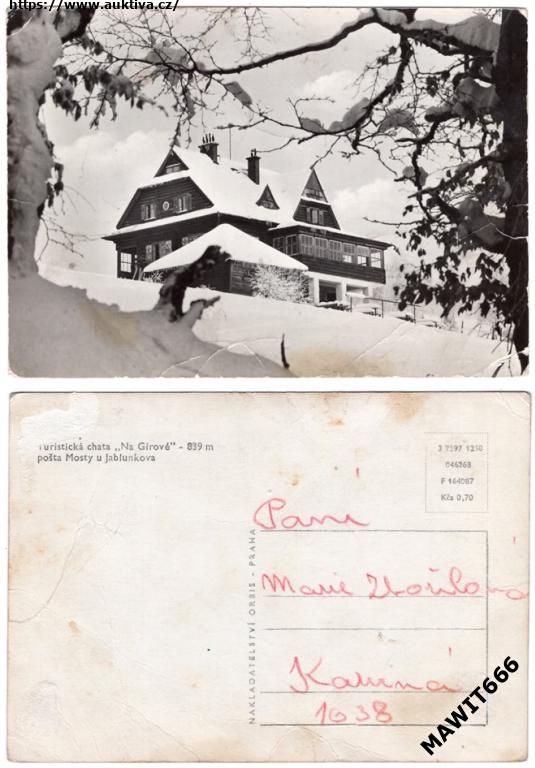 https://www.auktiva.cz/
Turistická chata „Na Girové" - 839 m
pošta Mosty u Jablunkova
3 7397 1250
046268
F 164087
Kčs 0,70
NAKLADATELSTVÍ ORBIS - PRAHA
Paní
Marie
Karviná
1038
MAWIT666